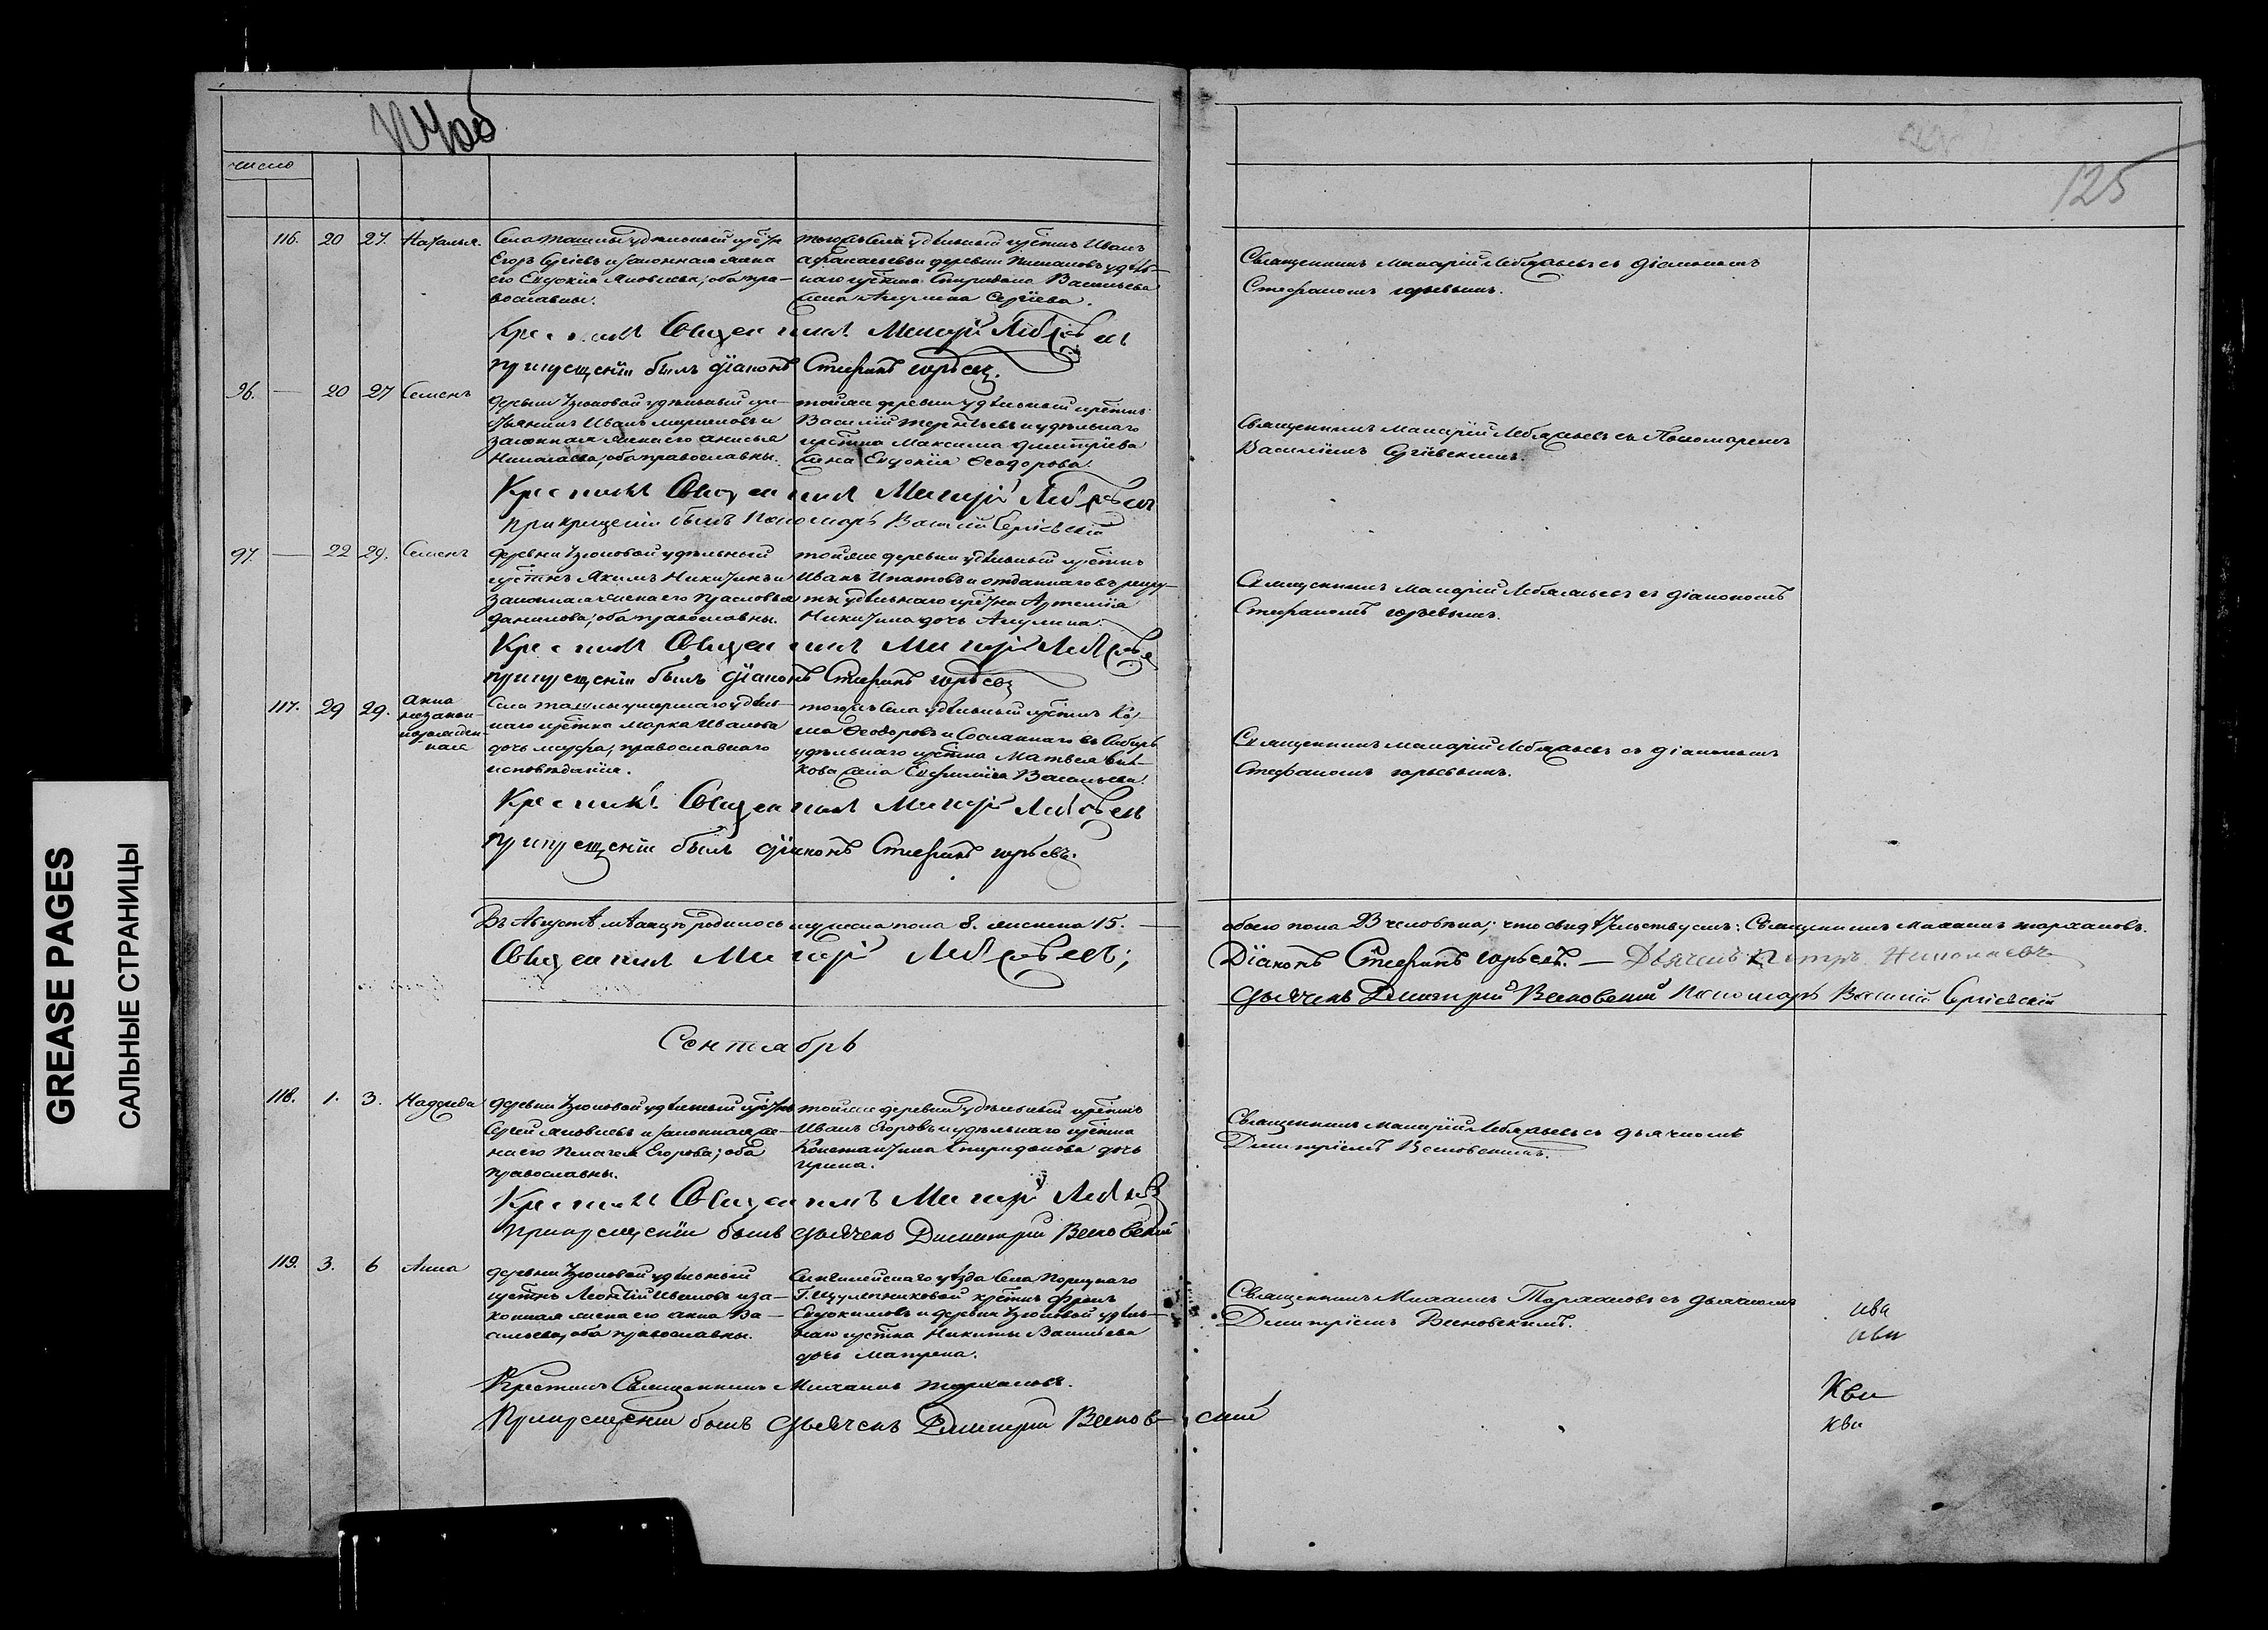 125
число
116. 20 27. Наталья.
Села Ташлы удѣльный крест:
Егоръ Сергіевъ и законная жена
его Евдокія Яковлева; оба пра-
вославны.
тогоже Села удѣльный крестнъ Иванъ
Афанасьевъ и деревни удѣль-
наго крестна Спиридона Васильева
жена Акулина Сергіева.
Священникъ Макарій Лебяжьевъ съ діакономъ
Стефаномъ Юрьевымъ.
Крестилъ Священникъ Макарій Лебяжьевъ
при крещеніи былъ діаконъ Стефанъ Юрьевъ.
96. — 20 27 Семенъ
деревни удѣльный кре-
стьянинъ Иванъ и
законная жена его Анисья
Николаева; оба православны.
тойже деревни удѣльный крестнъ
Василій Терентьевъ и удѣльнаго
крестна Максима Димитріева
жена Евдокія Ѳеодорова.
Священникъ Макарій Лебяжьевъ съ Пономаремъ
Василіемъ Сергіевскимъ.
Крестилъ Священникъ Макарій Лебяжьевъ
при крещеніи былъ Пономарь Василій Сергіевскій
97. — 22 29. Семенъ
деревни удѣльный
крестнъ Якимъ Никитинъ и
законная жена его Прасковья
Данилова; оба православны.
тойже деревни удѣльный крестнъ
Иванъ Ипатовъ и отданнаго въ рекру-
ты удѣльнаго крестна Артемія
Никитина дочь Акулина.
Священникъ Макарій Лебяжьевъ съ діакономъ
Стефаномъ Юрьевымъ.
Крестилъ Священникъ Макарій Лебяжьевъ
при крещеніи былъ діаконъ Стефанъ Юрьевъ
117. 29 29. Анна
незакон-
норожден-
ная
Села Ташлы умершаго удѣль-
наго крестна Марка Иванова
дочь православнаго
исповѣданія.
тогоже Села удѣльный крестнъ
Ѳеодоровъ и Сосланнаго въ Сибирь
удѣльнаго крестна Матвея
жена Евфимія Васильева.
Священникъ Макарій Лебяжьевъ съ діакономъ
Стефаномъ Юрьевымъ.
Крестилъ Священникъ Макарій Лебяжьевъ
при крещеніи былъ діаконъ Стефанъ Юрьевъ.
Въ Августѣ мѣсяцѣ родилось мужеска пола 8. женска 15. — обоего пола 23 человѣка; что свидѣтельствуемъ: Священникъ Михаилъ Тархановъ.
Священникъ Макарій Лебяжьевъ; Діаконъ Стефанъ Юрьевъ. — Дьячекъ Петръ Николаевъ
дьячекъ Димитрій Весновскій Пономарь Василій Сергіевскій
Сентябрь
118. 1. 3. Надежда
деревни удѣльный крестнъ
Сергей Яковлевъ и законная же-
на его Пелагея Егорова; оба
православны.
тойже деревни удѣльный крестнъ
Иванъ Егоровъ и удѣльнаго крестна
Константина Спиридонова дочь
Ирина.
Священникъ Макарій Лебяжьевъ съ дьячкомъ
Димитріемъ Весновскимъ.
Крестилъ Священникъ Макарій Лебяжьевъ
При крещеніи былъ дьячекъ Димитрій Весновскій
119. 3. 6 Анна
деревни удѣльный
крестнъ Леонтій Ивановъ и за-
конная жена его Анна Ва-
сильева; оба православны.
Сингилейскаго уѣзда Села Порецкаго
Г. крестнъ
Евдокимовъ и деревни удѣль-
наго крестна Никиты Васильева
дочь Матрена.
Священникъ Михаилъ Тархановъ съ дьячкомъ
Димитріемъ Весновскимъ.
Крестилъ Священникъ Михаилъ Тархановъ.
При крещеніи былъ дьячекъ Димитрій Веснов-скій
GREASE PAGES
САЛЬНЫЕ СТРАНИЦЫ